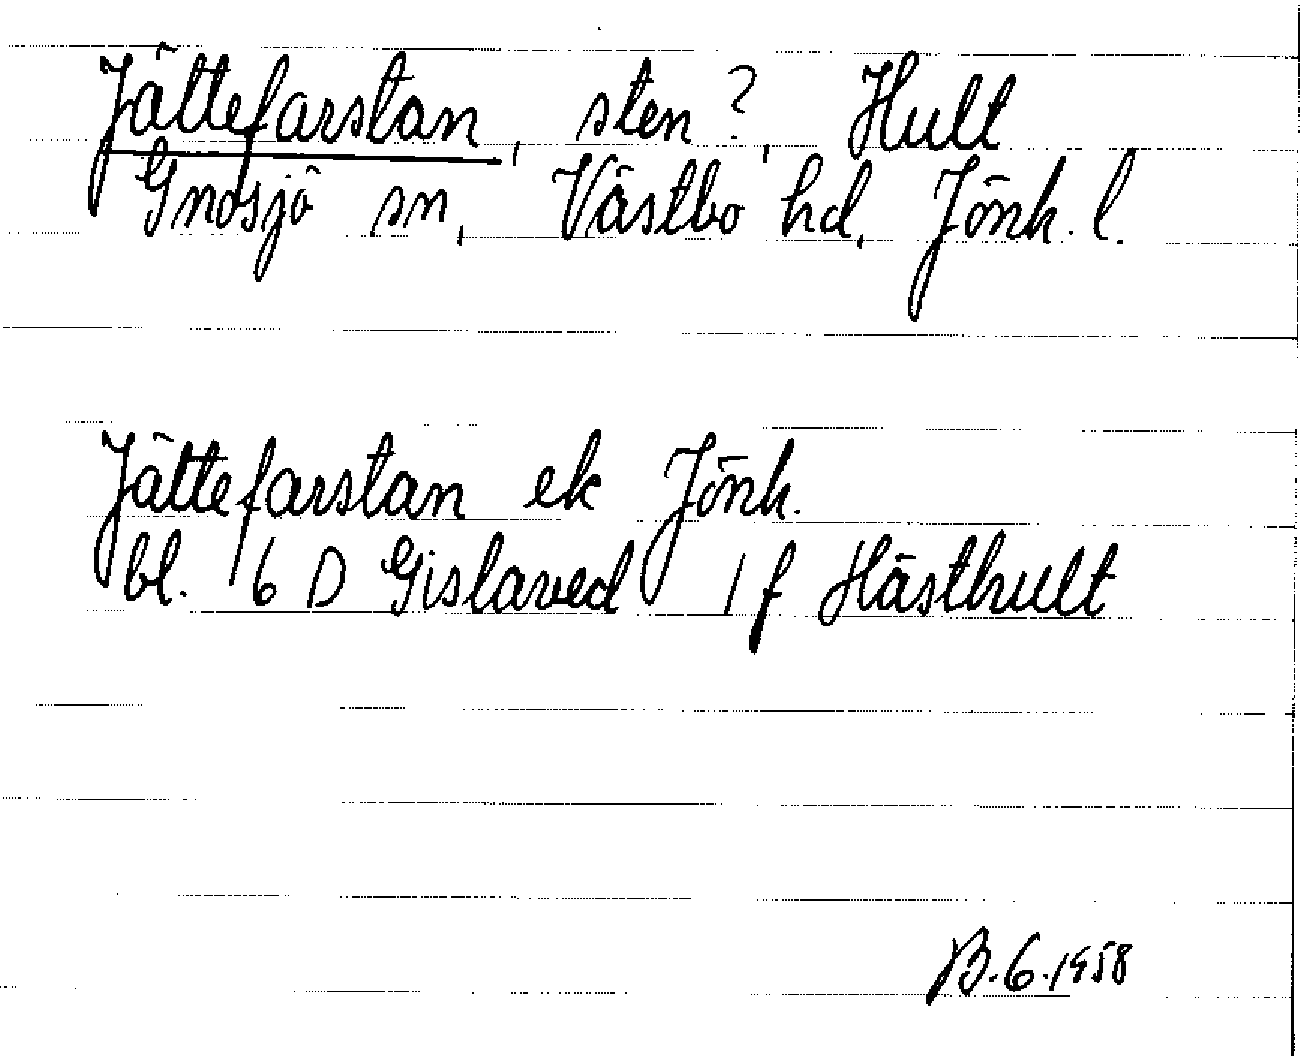 Jättefarstan, sten?, Hult
Gnosjö sn, Västbo hd, Jönk. l.
Jättefarstan ek Jönk.
bl. 6 D Gislaved 1 f Hästhult
B.G.1958